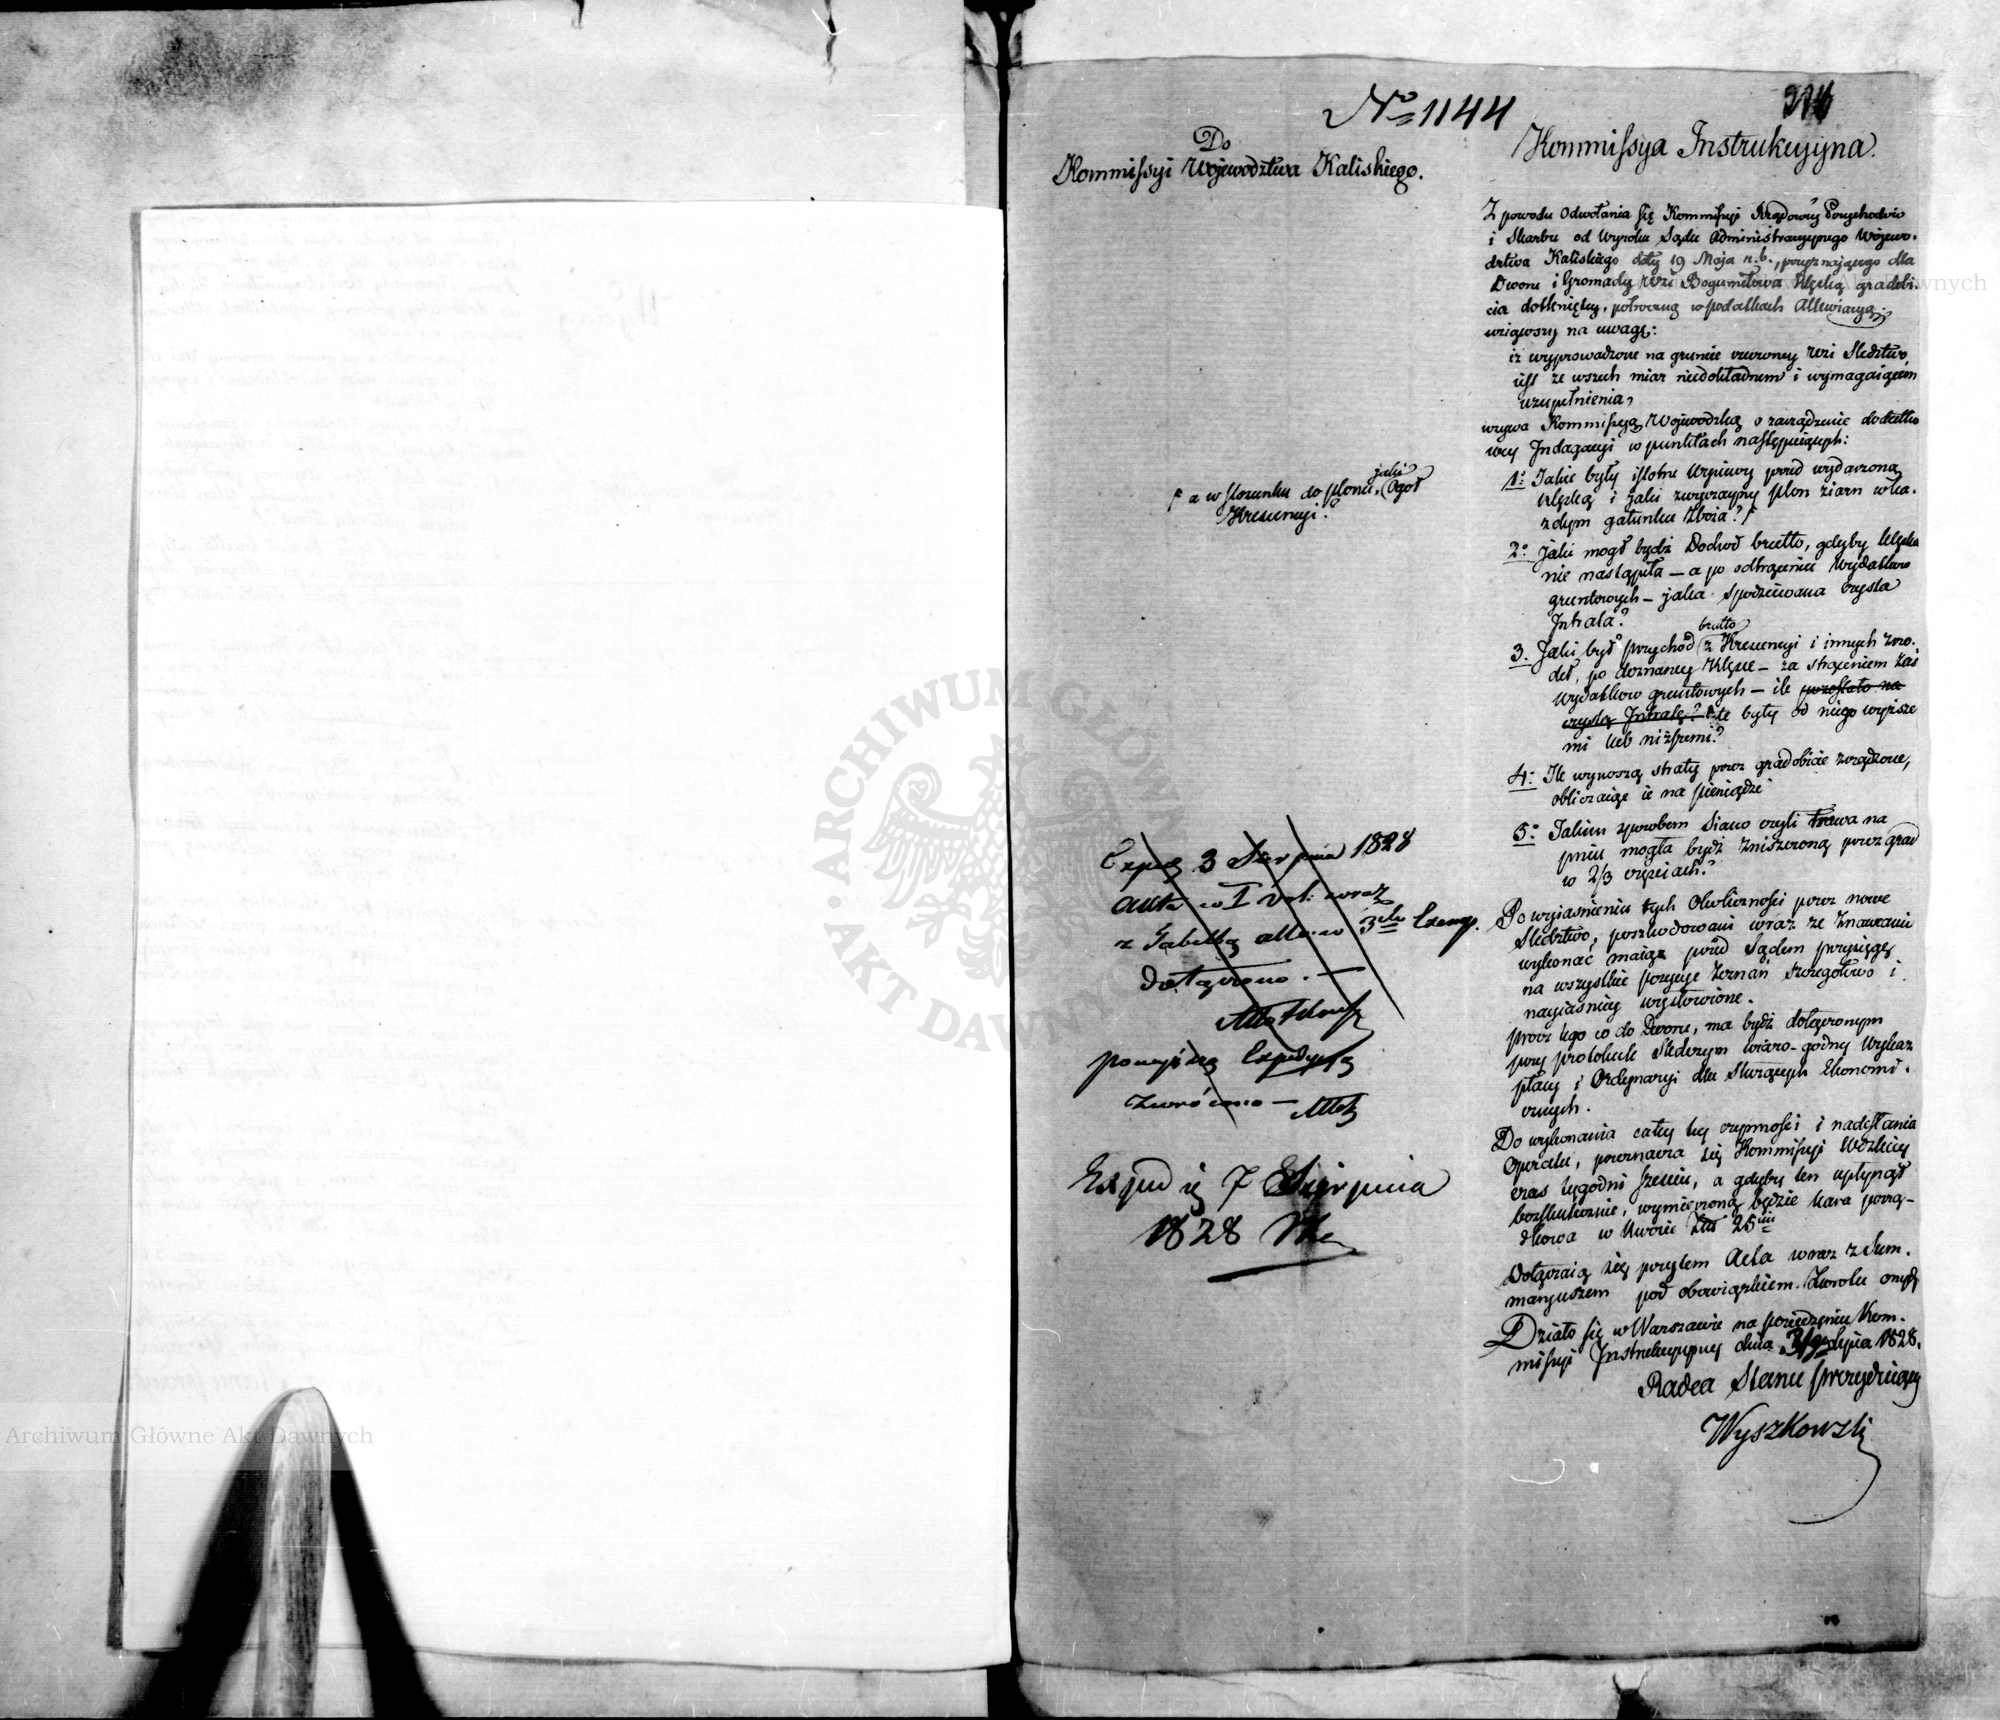 No 1144
Do
Kommissyi Województwa Kaliskiego.
Kommissya Instrukcyyna.
Z powodu Odwołania się Kommissyi Rządowéy Przychodów
i Skarbu od Wyroku Sądu Administracyynego Wojewo-
dztwa Kaliskiego daty 19 Maja r. b., przyznającego dla
Dworu i Gromady Wsi Bogumiłowa klęską gradobi-
cia dotkniętey, półroczną w podatkach Allewiacyą;
wziąwszy na uwagę:
iż wyprowadzone na gruncie rzeczoney Wsi Śledztwo,
iest ze wszech miar niedokładnem i wymagaiącem
uzupełnienia,
wzywa Kommissyą Wojewodzką o zarządzenie dodatko
wey Indagacyi w punktach następuiących:
1o Jakie były istotne Wysiewy przed wydarzoną
klęską i jaki zwyczayny plon ziarn w ka-
żdym gatunku Zboża? F
F a w stosunku do plonu, jaki Ogół
Krescencyi?
2o Jaki mógł bydź Dochód brutto, gdyby klęska
nie nastąpiła — a po odtrąceniu Wydatków
gruntowych — jaka spodziewana czysta
Intrata?
3. Jaki był przychód brutto z Krescencyi i innych źró-
deł, po doznaney klęsce — za strąceniem zaś
wydatków gruntowych — ile pozostało na
czystą Intratę? te były od niego wyższe
mi lub niższemi?
4o Ile wynoszą straty przez gradobicie zrządzone,
obliczaiąc ie na pieniądze
5o Jakim sposobem Siano czyli trawa na
pniu mogła bydź zniszczoną przez grad
w 2/3 częściach?
Po wyiaśnieniu tych Okoliczności przez nowe
Śledztwo, poszkodowani wraz ze Znawcami
wykonać maią przed Sądem przysięgę
na wszystkie pozycye zeznań szczegółowo i
nayiaśniey wysłowione.
prócz tego co do Dworu, ma bydź dołączonym
przy protokule Śledczym wiaro-godny Wykaz
płacy i Ordynaryi dla Służących Ekonomi-
cznych.
Do wykonania całey tey czynności i nadesłania
Operatu, przeznacza się Kommissyi Wdzkiey
czas tygodni sześciu, a gdyby ten upłynął
bezskutecznie, wymierzoną będzie kara porzą-
dkowa w kwocie Złt 25
Dołączaią się przytem Acta wraz z Sum-
maryuszem pod obowiązkiem Zwrotu onych
Działo się w Warszawie na posiedzeniu Kom-
missyi Instrukcyyney dnia 31go Lipca 1828.
Radca Stanu prezyduiący
Wyszkowski
Exped 3 Sierpnia 1828
akta w I Vol: wraz
z Tabellą allew. w 3ch Exemp.
Dołączono. —
powyższą Expedycyą
Zwrócono —
Exped ię 7 Sierpnia
1828
Archiwum Główne Akt Dawnych
ARCHIWUM GŁÓWNE AKT DAWNYCH